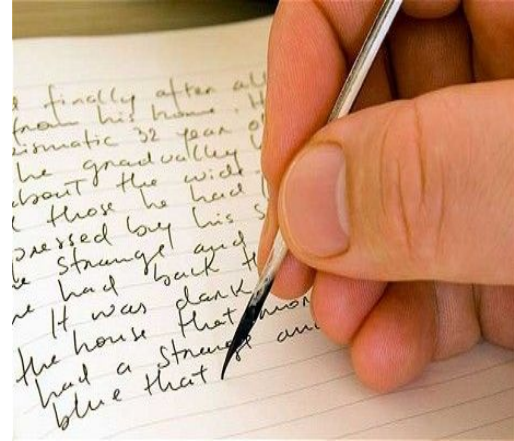 finally after all
from his home. H
ismatic 32 year o
he gradually
about the wide
those he had
pressed by his s
e strange and
e had back t
It was dark
the house that mor
had a strange an
blue that